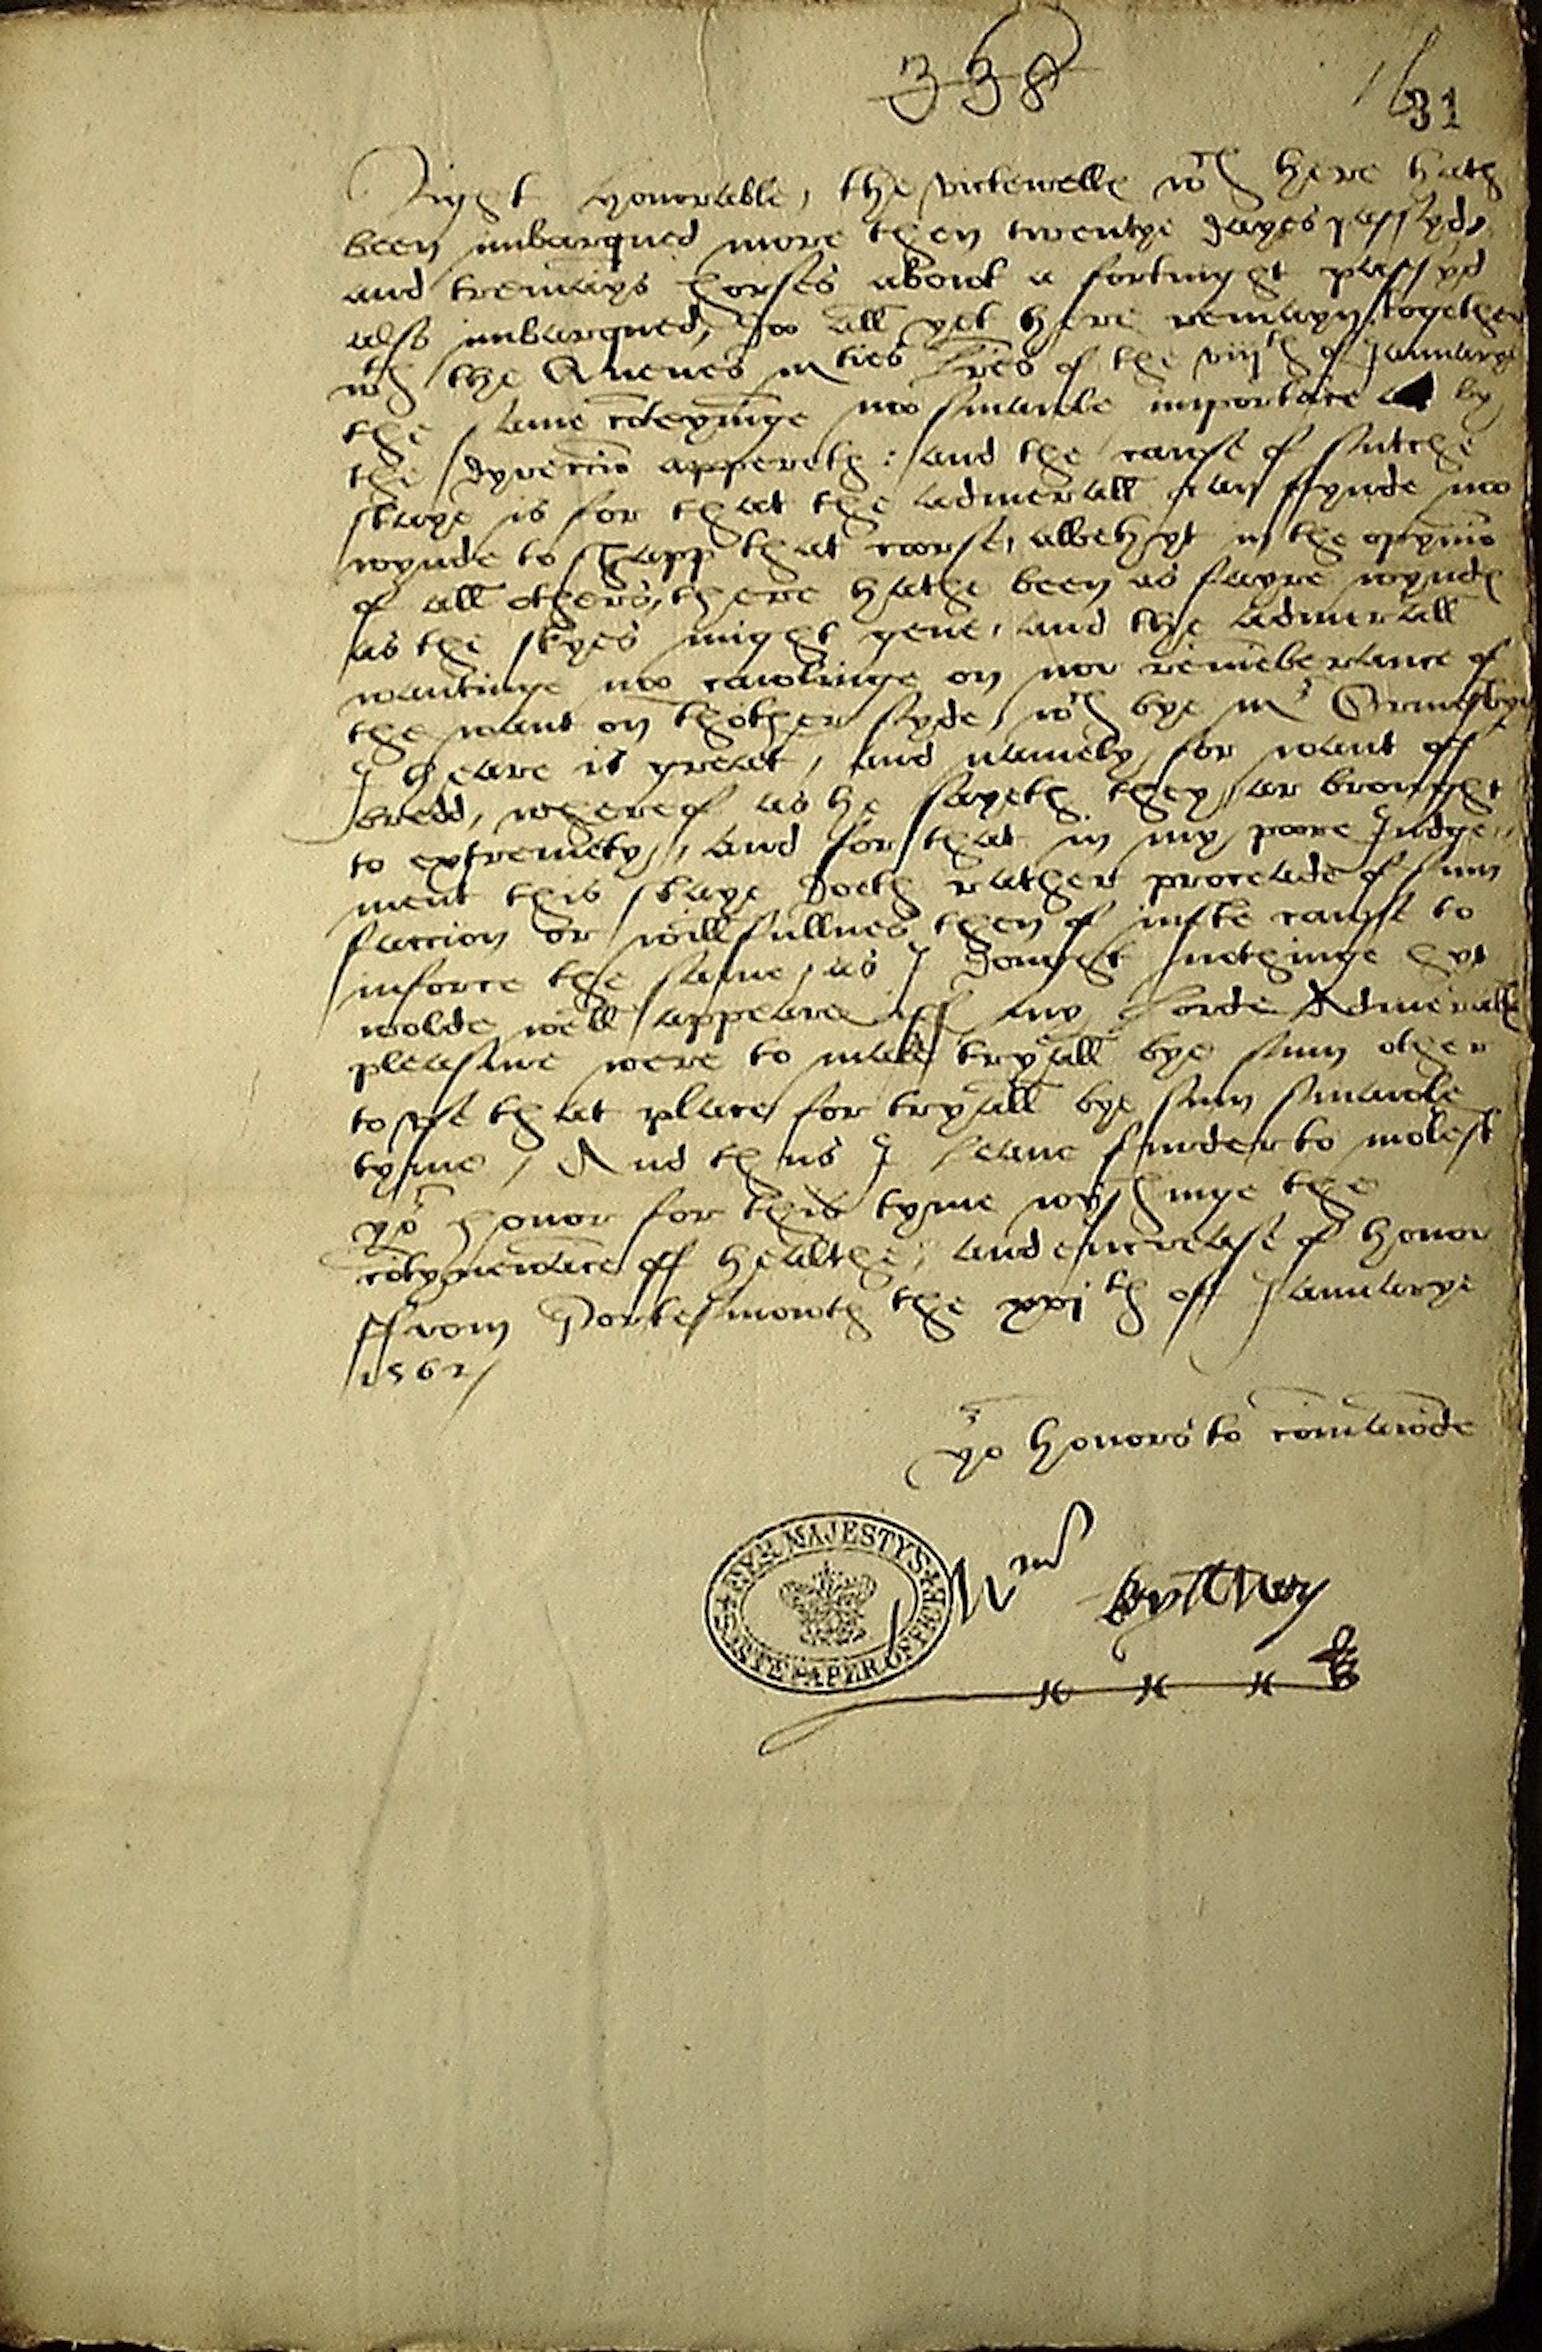 338
31
Right honorable, the victewelle wch here hath
been imbarqued more then twentye dayes passyd,
and tremayns horses about a fortnyght passyd
also imbarqued, doo all yet here remayn, together
wth the Quenes Mties lres of the viijth of Januarye
the same coteyninge noo smaule importace by
the dyreccio appereth: and the cause of sutche
staye is for that the admerall can ffynde noo
wynde to shapp that corse, albehyt in the opynio
of all others, there hathe been as fayre wynde
as the skyes might geue, and the admerall
wantinge noo caulinge on nor remeberance of
the want on thother syde, wch bye Mr Ormesbye
I heare is great, and namely for want off
bredd, wherof as he sayeth they ar brought
to extremety, and for that in my poore Judge,,
ment this staye doeth rather proceade of sum
faccion or willfullnes then of juste cause to
inforce the same, as I dought nothinge hyt
wolde well appeare iff my Lorde Admeralls
pleasure were to make tryall bye sum other
to vse that place for tryall bye sum smaule
tyme, And thus I leaue furder to molest
yor honor for this tyme wyshinge the
cotynewace off healthe, and encrease of honor
ffrom Portesmowth the xxjth off Januarye
1562/
yor honors to comaunde
HYR MAJESTY'S STATE PAPER OFFICE
Wm